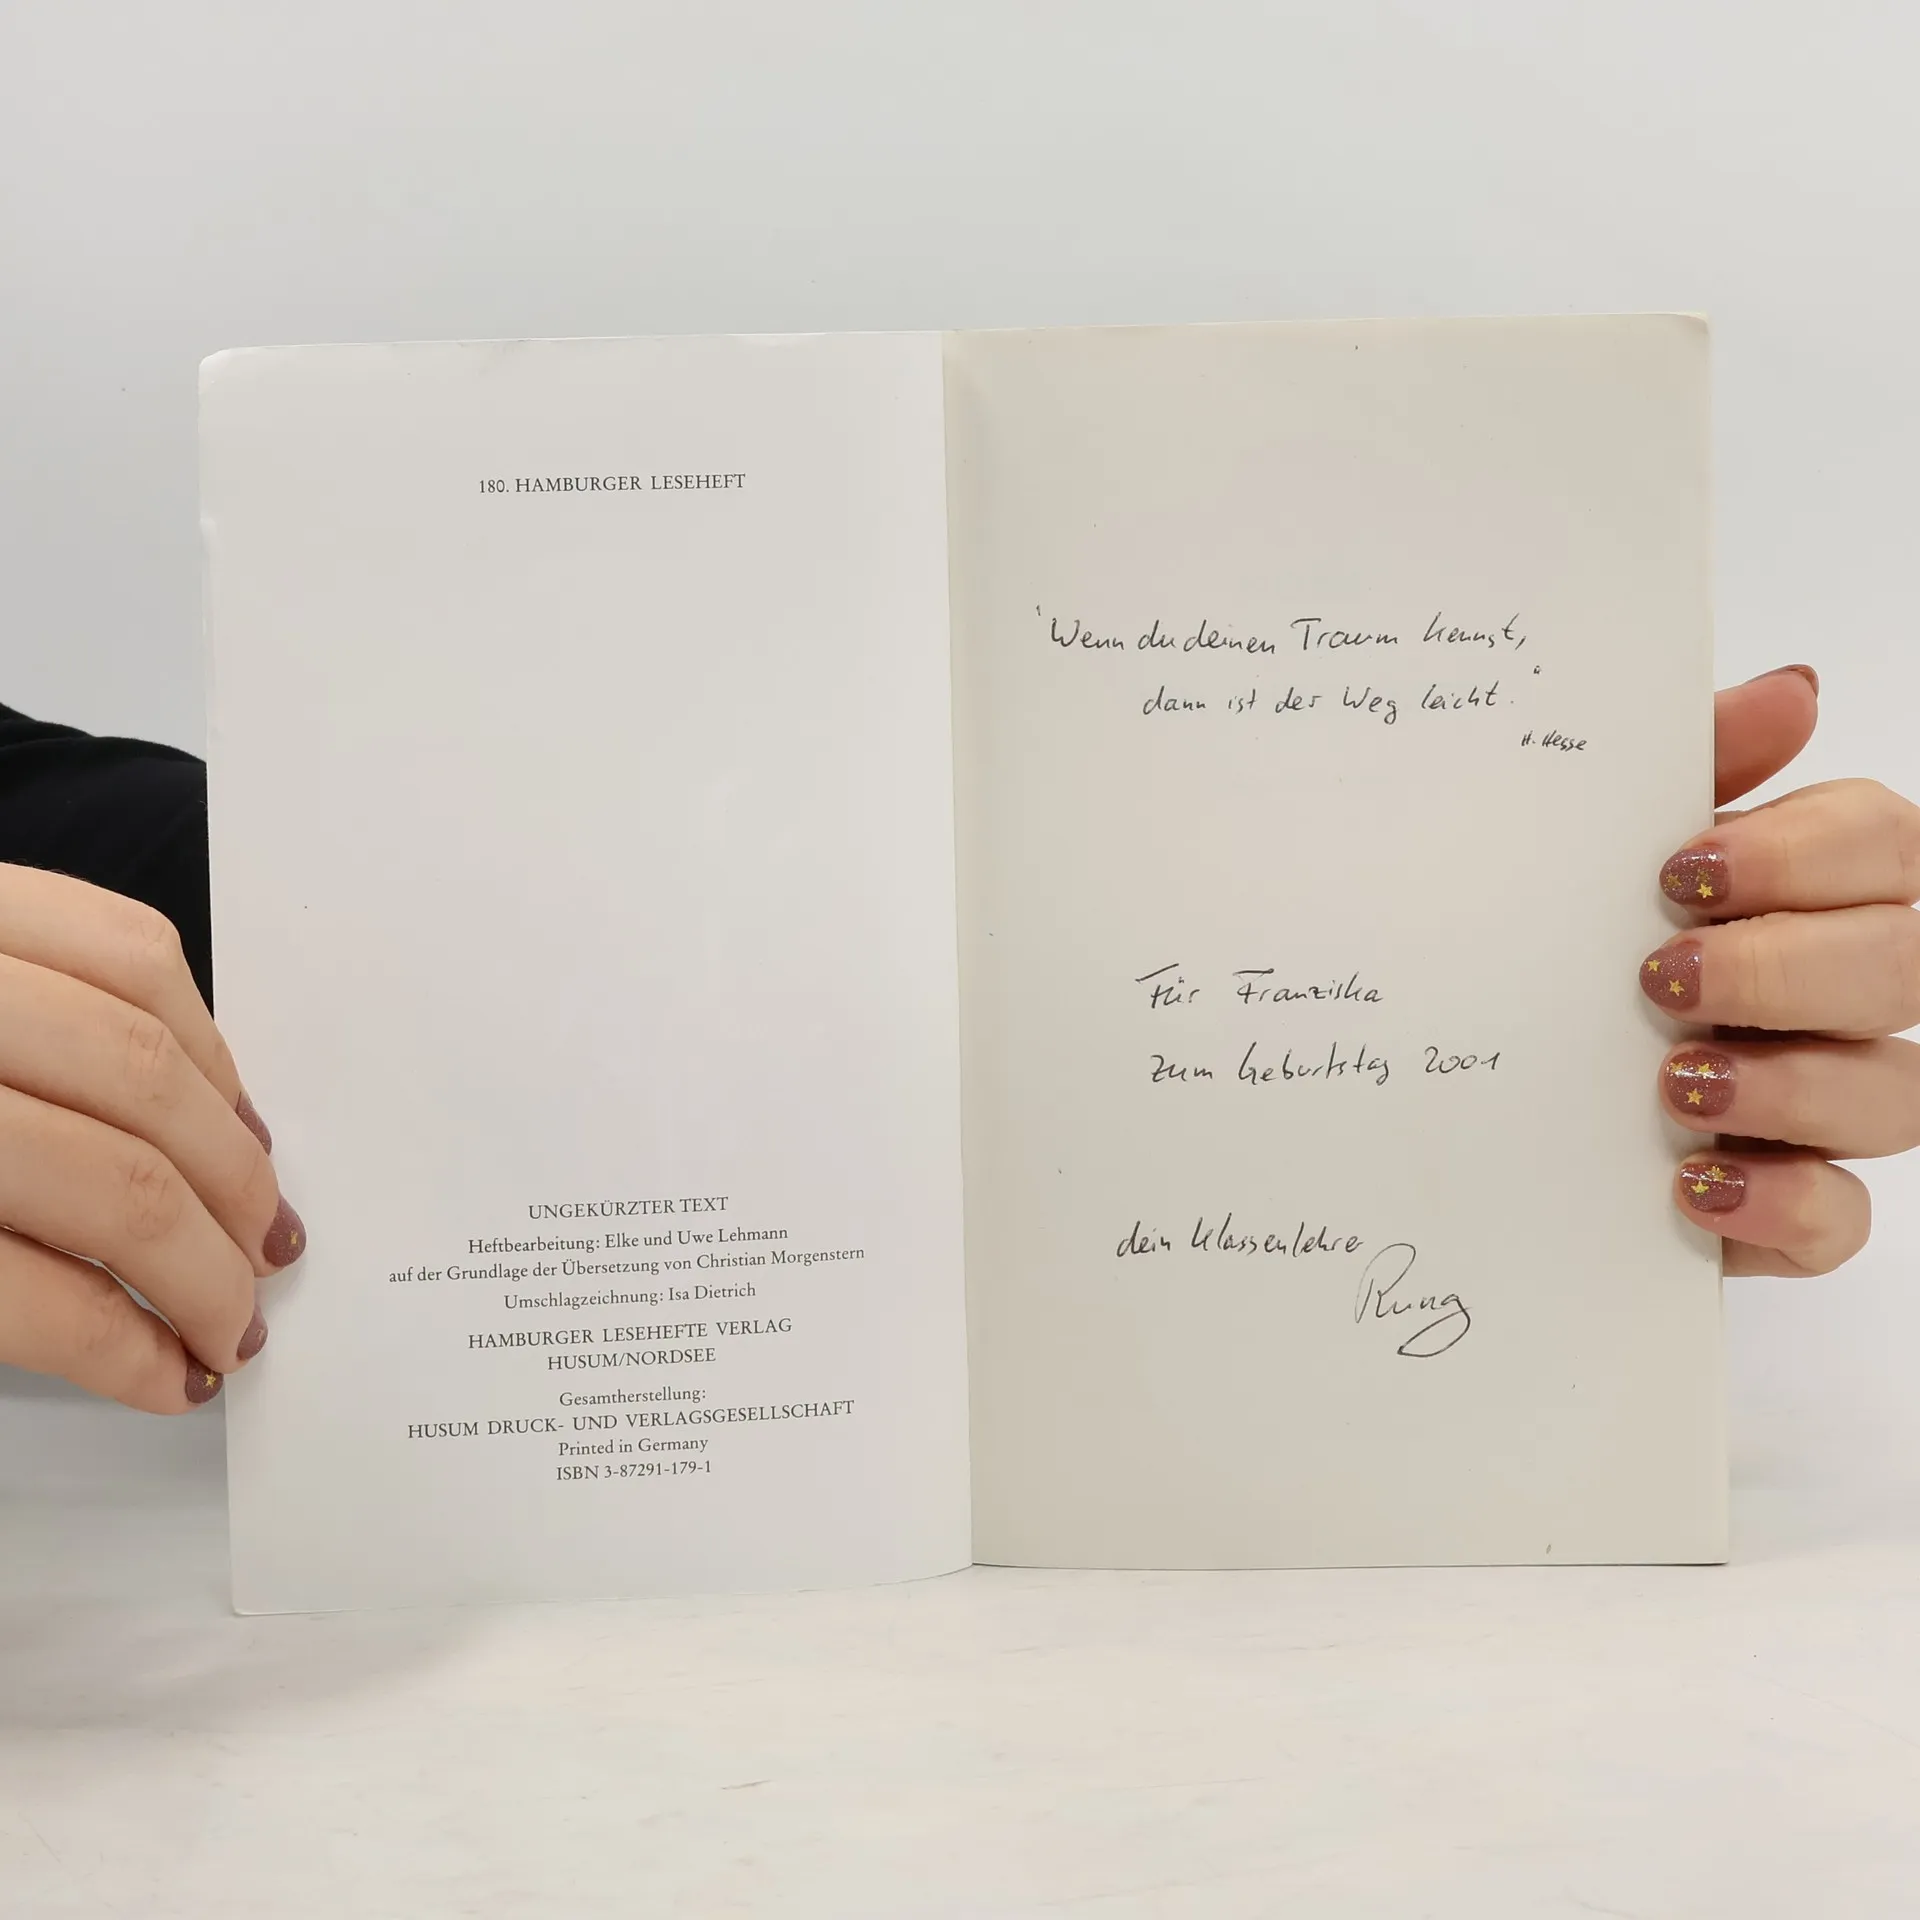 180. HAMBURGER LESEHEFT
UNGEKÜRZTER TEXT
Heftbearbeitung: Elke und Uwe Lehmann
auf der Grundlage der Übersetzung von Christian Morgenstern
Umschlagzeichnung: Isa Dietrich
HAMBURGER LESEHEFTE VERLAG
HUSUM/NORDSEE
Gesamtherstellung:
HUSUM DRUCK- UND VERLAGSGESELLSCHAFT
Printed in Germany
ISBN 3-87291-179-1
"Wenn du deinen Traum kennst,
dann ist der Weg leicht."
H. Hesse
Für Franziska
zum Geburtstag 2001
dein Klassenlehrer